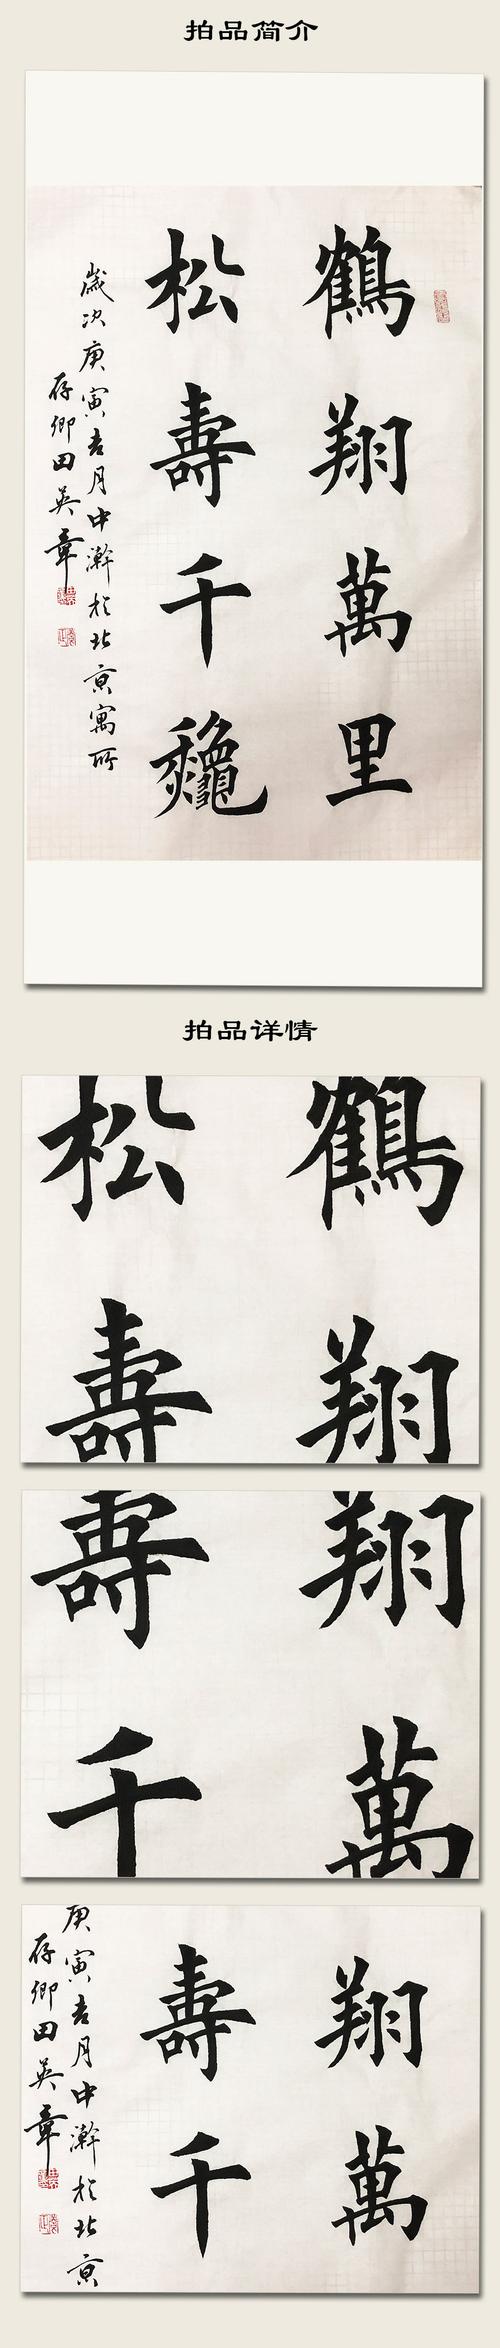 拍品简介
鶴翔萬里
松壽千龝
歲次庚寅吉月中澣於北京寓所
存卿田英章
拍品详情
鶴翔
松壽
翔萬
壽千
翔萬
壽千
庚寅吉月中澣於北京
存卿田英章